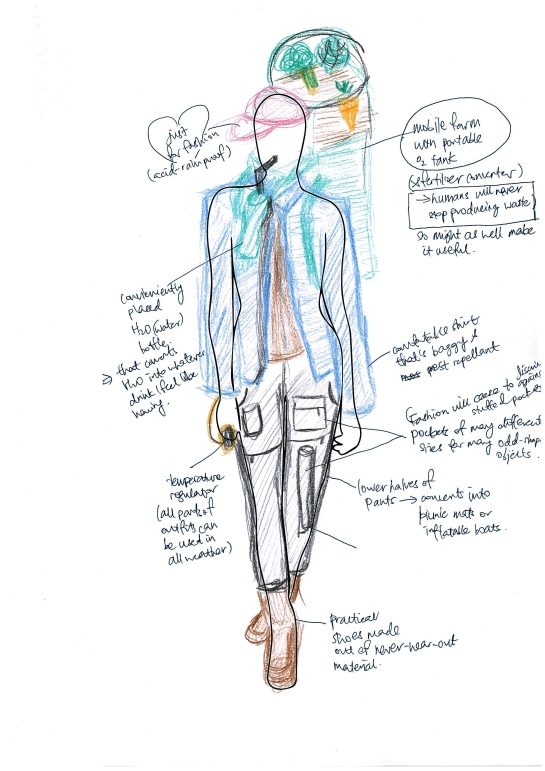 just
for fashion
(acid-rainproof)
mobile farm
with portable
O2 tank
(& fertilizer converter)
→humans will never
stop producing waste
so might as well make
it useful.
conveniently
placed
H2O (water)
bottle
→ that converts
H2O into whatever
drink i feel like
having.
comfortable shirt
that's baggy &
pest repellant
Fashion will cease to discrim
against
stuffed pockets
pockets of many different
sizes for many odd-shap
objects.
temperature
regulator
(all parts of
outfits can
be used in
all weather)
lower halves of
pants → converts into
picnic mats or
inflatable boats.
practical
shoes made
out of never-wear-out
material.